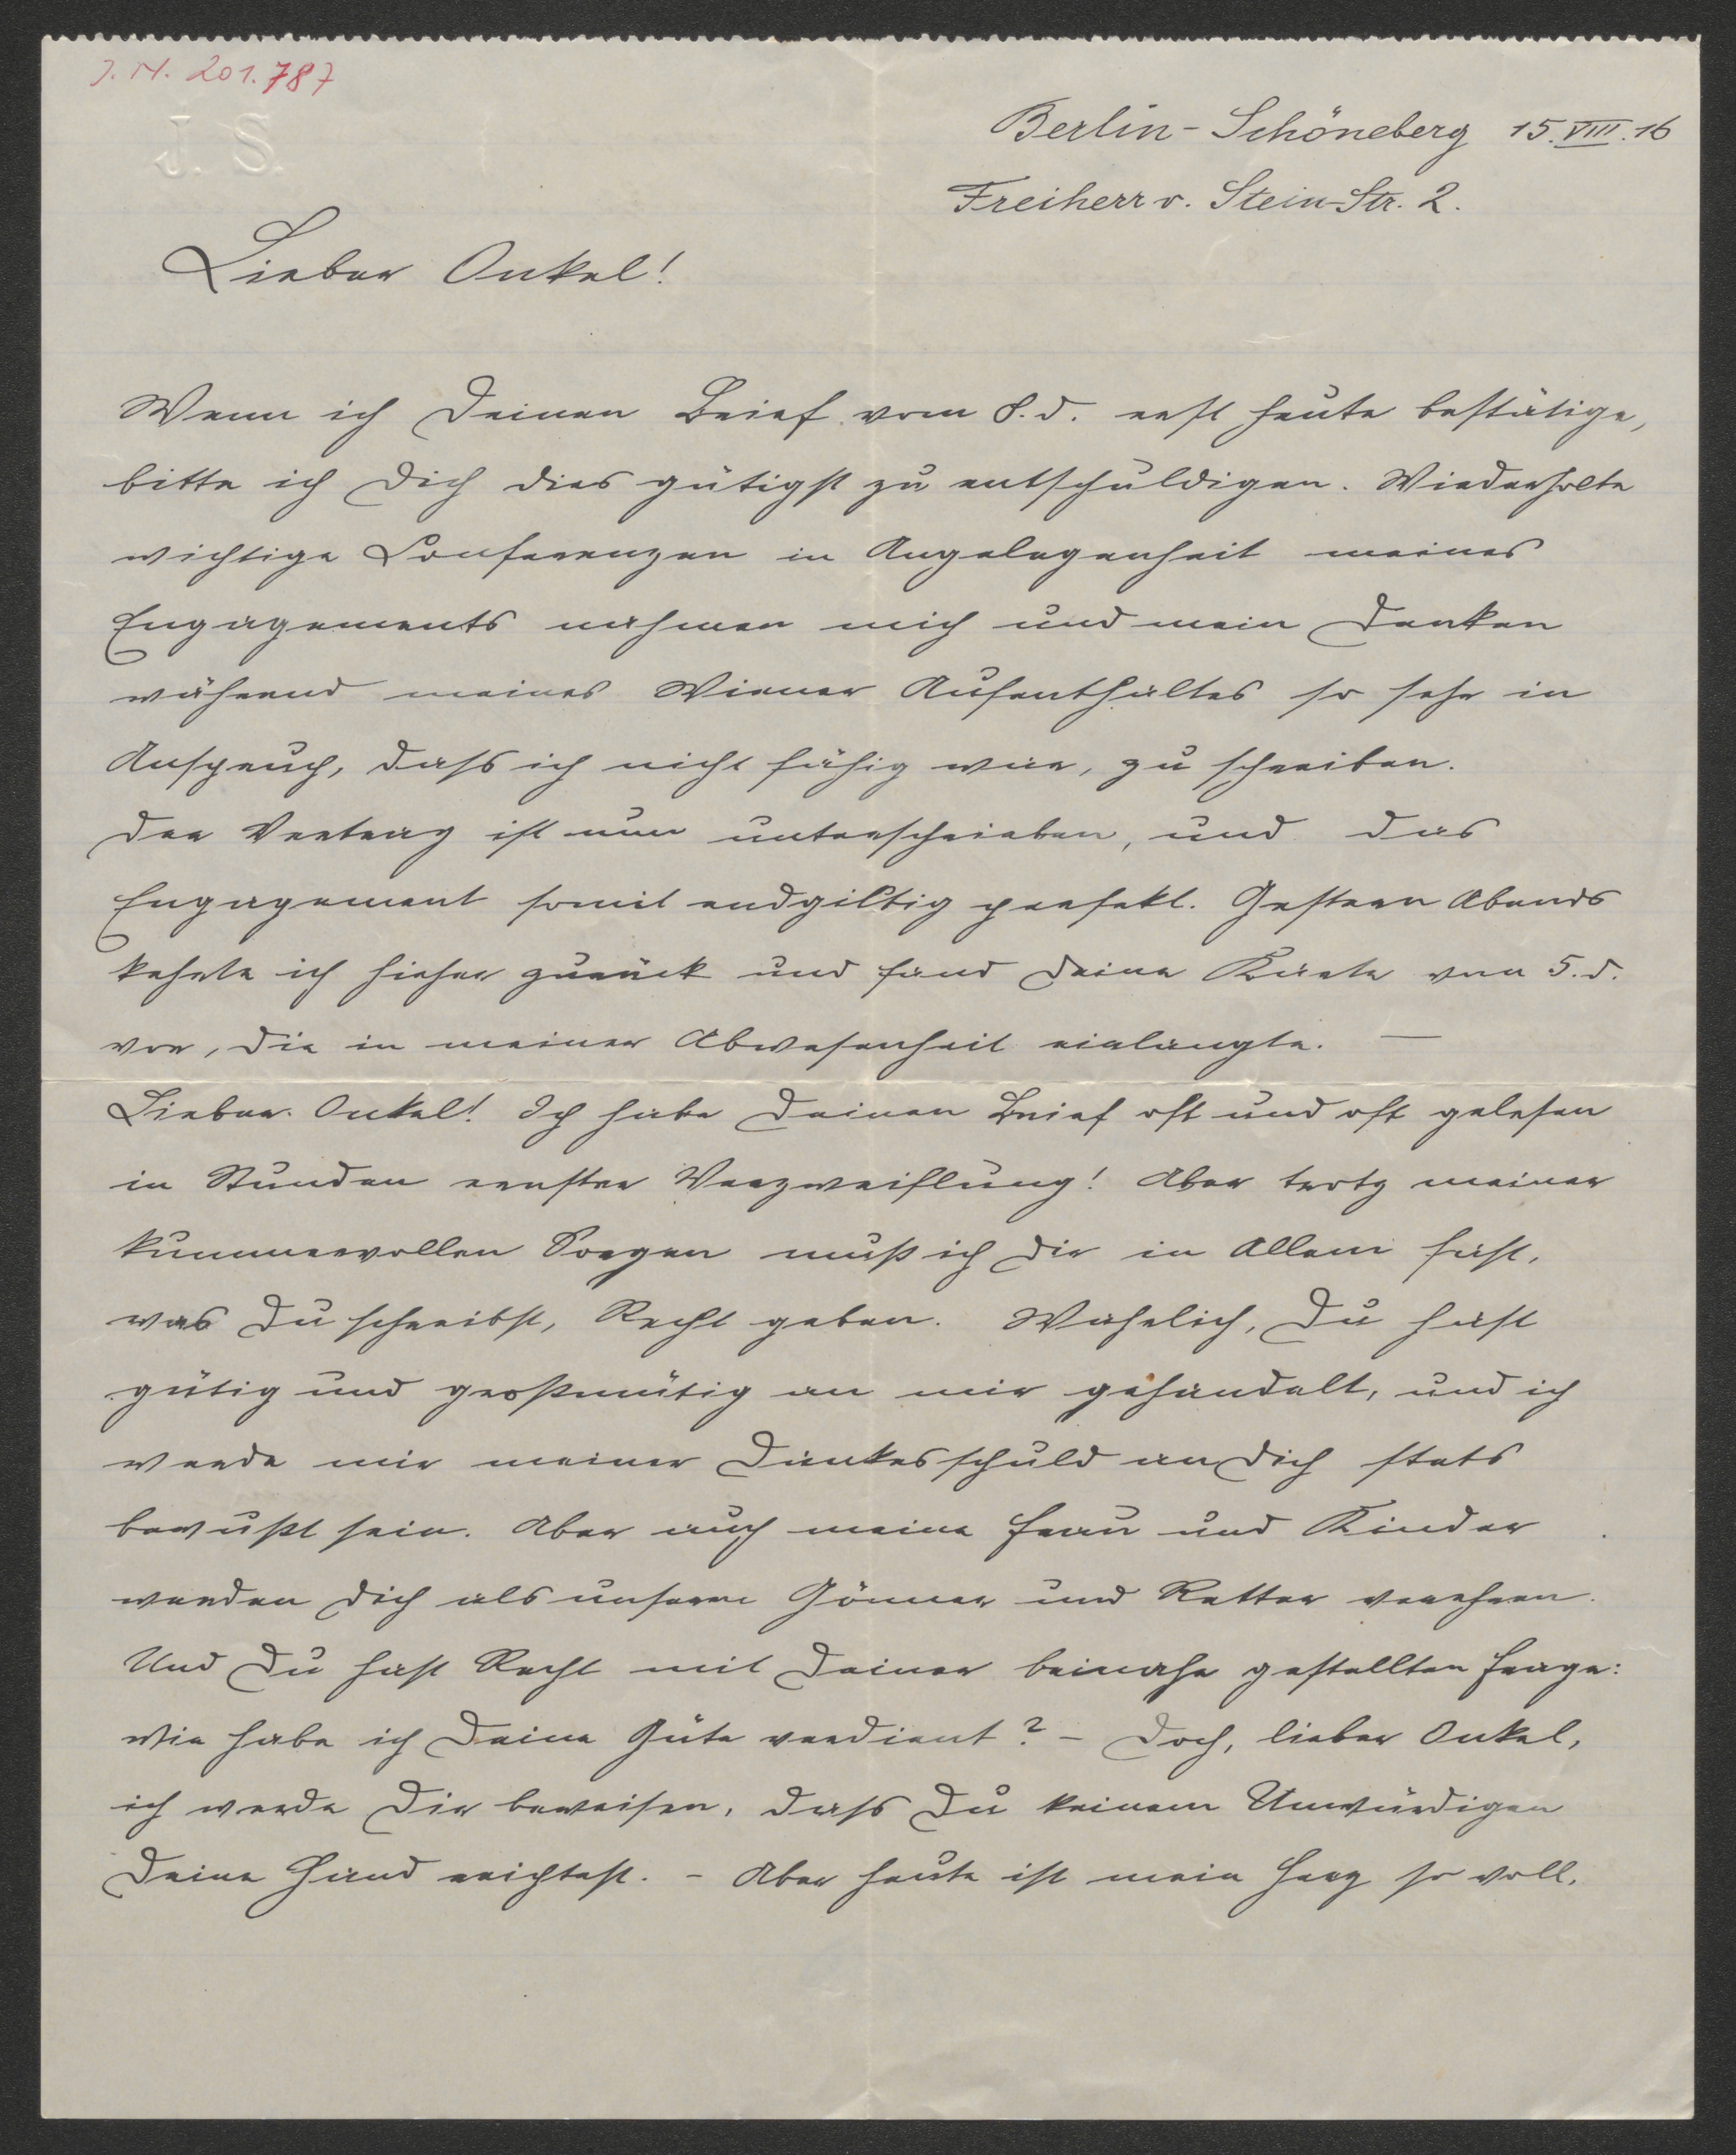 J. N. 201.787
J. S.
Berlin-Schöneberg 15.VIII.16
Freiherr v. Stein-Str. 2.
Lieber Onkel!
Wenn ich Deinen Brief vom 8. d. erst heute bestätige,
bitte ich Dich dies gütigst zu entschuldigen. Wiederholte
wichtige Conferenzen in Angelegenheit meines
Engagements nahmen mich und mein Denken
während meines Wiener Aufenthaltes so sehr in
Anspruch, dass ich nicht fähig war, zu schreiben.
Der Vertrag ist nun unterschrieben, und das
Engagement somit endgiltig perfekt. Gestern Abends
kehrte ich hieher zurück und fand Deine Karte vom 5. d.
vor, die in meiner Abwesenheit einlangte. —
Lieber Onkel! Ich habe Deinen Brief oft und oft gelesen
in Stunden ernster Verzweiflung! Aber trotz meiner
kummervollen Sorgen muß ich Dir in Allem fast,
was Du schreibst, Recht geben. Wahrlich, Du hast
gütig und großmütig an mir gehandelt, und ich
werde mir meiner Dankesschuld an Dich stets
bewußt sein. Aber auch meine Frau und Kinder
werden Dich als unseren Gönner und Retter verehren.
Und Du hast Recht mit Deiner beinahe gestellten Frage:
wie habe ich Deine Güte verdient? – Doch, lieber Onkel,
ich werde Dir beweisen, dass Du keinem Unwürdigen
Deine Hand reichtest. – Aber heute ist mein Herz so voll,